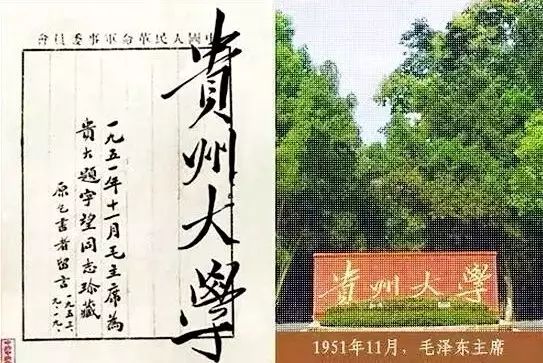 中國人民革命軍事委員會
貴州大學
一九五一年十一月毛主席為
贵大題字望同志珍藏
原乞書者留言
貴州大學
1951年11月，毛泽东主席